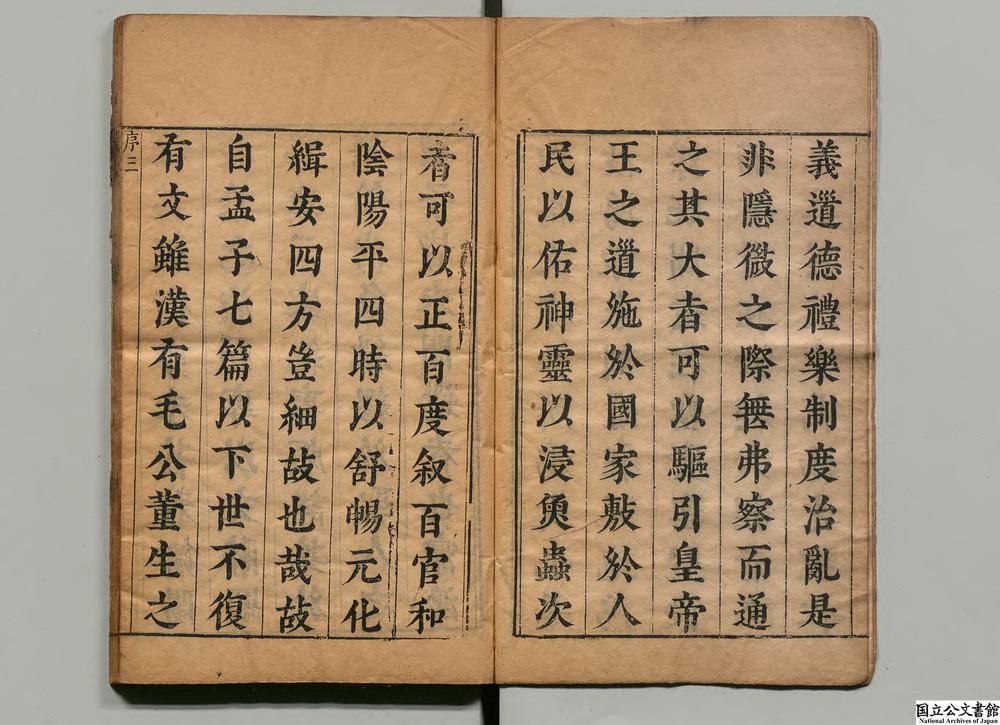 義道德禮樂制度治亂是
非隱微之際無弗察而通
之其大者可以驅引皇帝
王之道施於國家敷於人
民以佑神靈以浸魚蟲次
者可以正百度叙百官和
陰陽平四時以舒暢元化
緝安四方豈細故也哉故
自孟子七篇以下世不復
有文雖漢有毛公董生之
序三
国立公文書館
National Archives of Japan